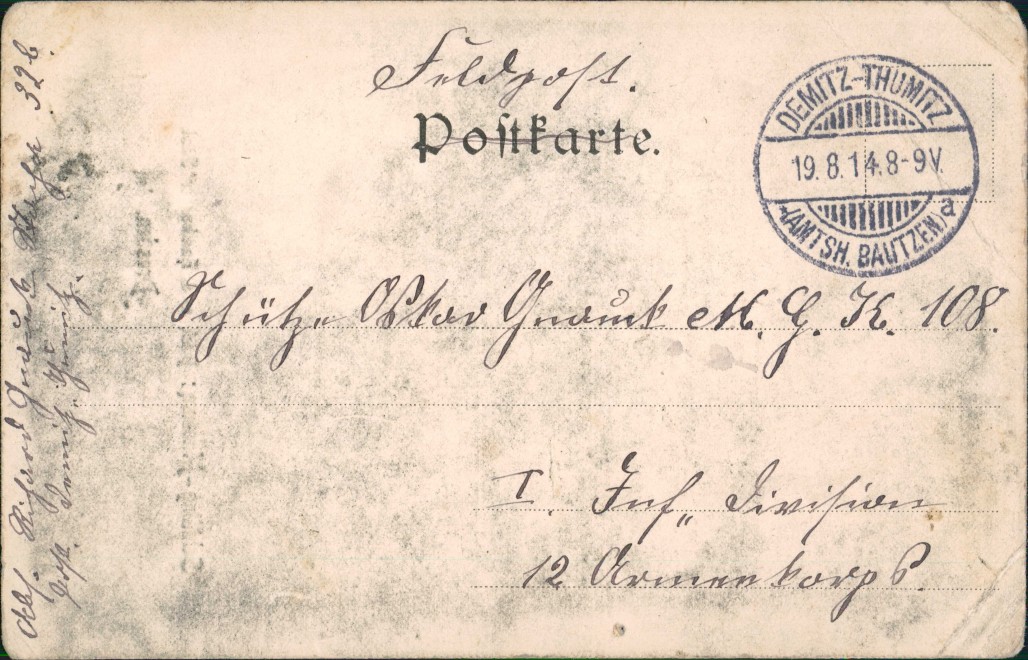 Feldpost.
Postkarte.
DEMITZ-THUMITZ
19.8.14.8-9V.
*(AMTSH. BAUTZEN) a
Schütze Oskar Gnauck M. G. K. 108.
I. Inf„ Division
12 Armeekorps.
Abs. Richard Gnauck 32b.
Post. Demitz-Thumitz.